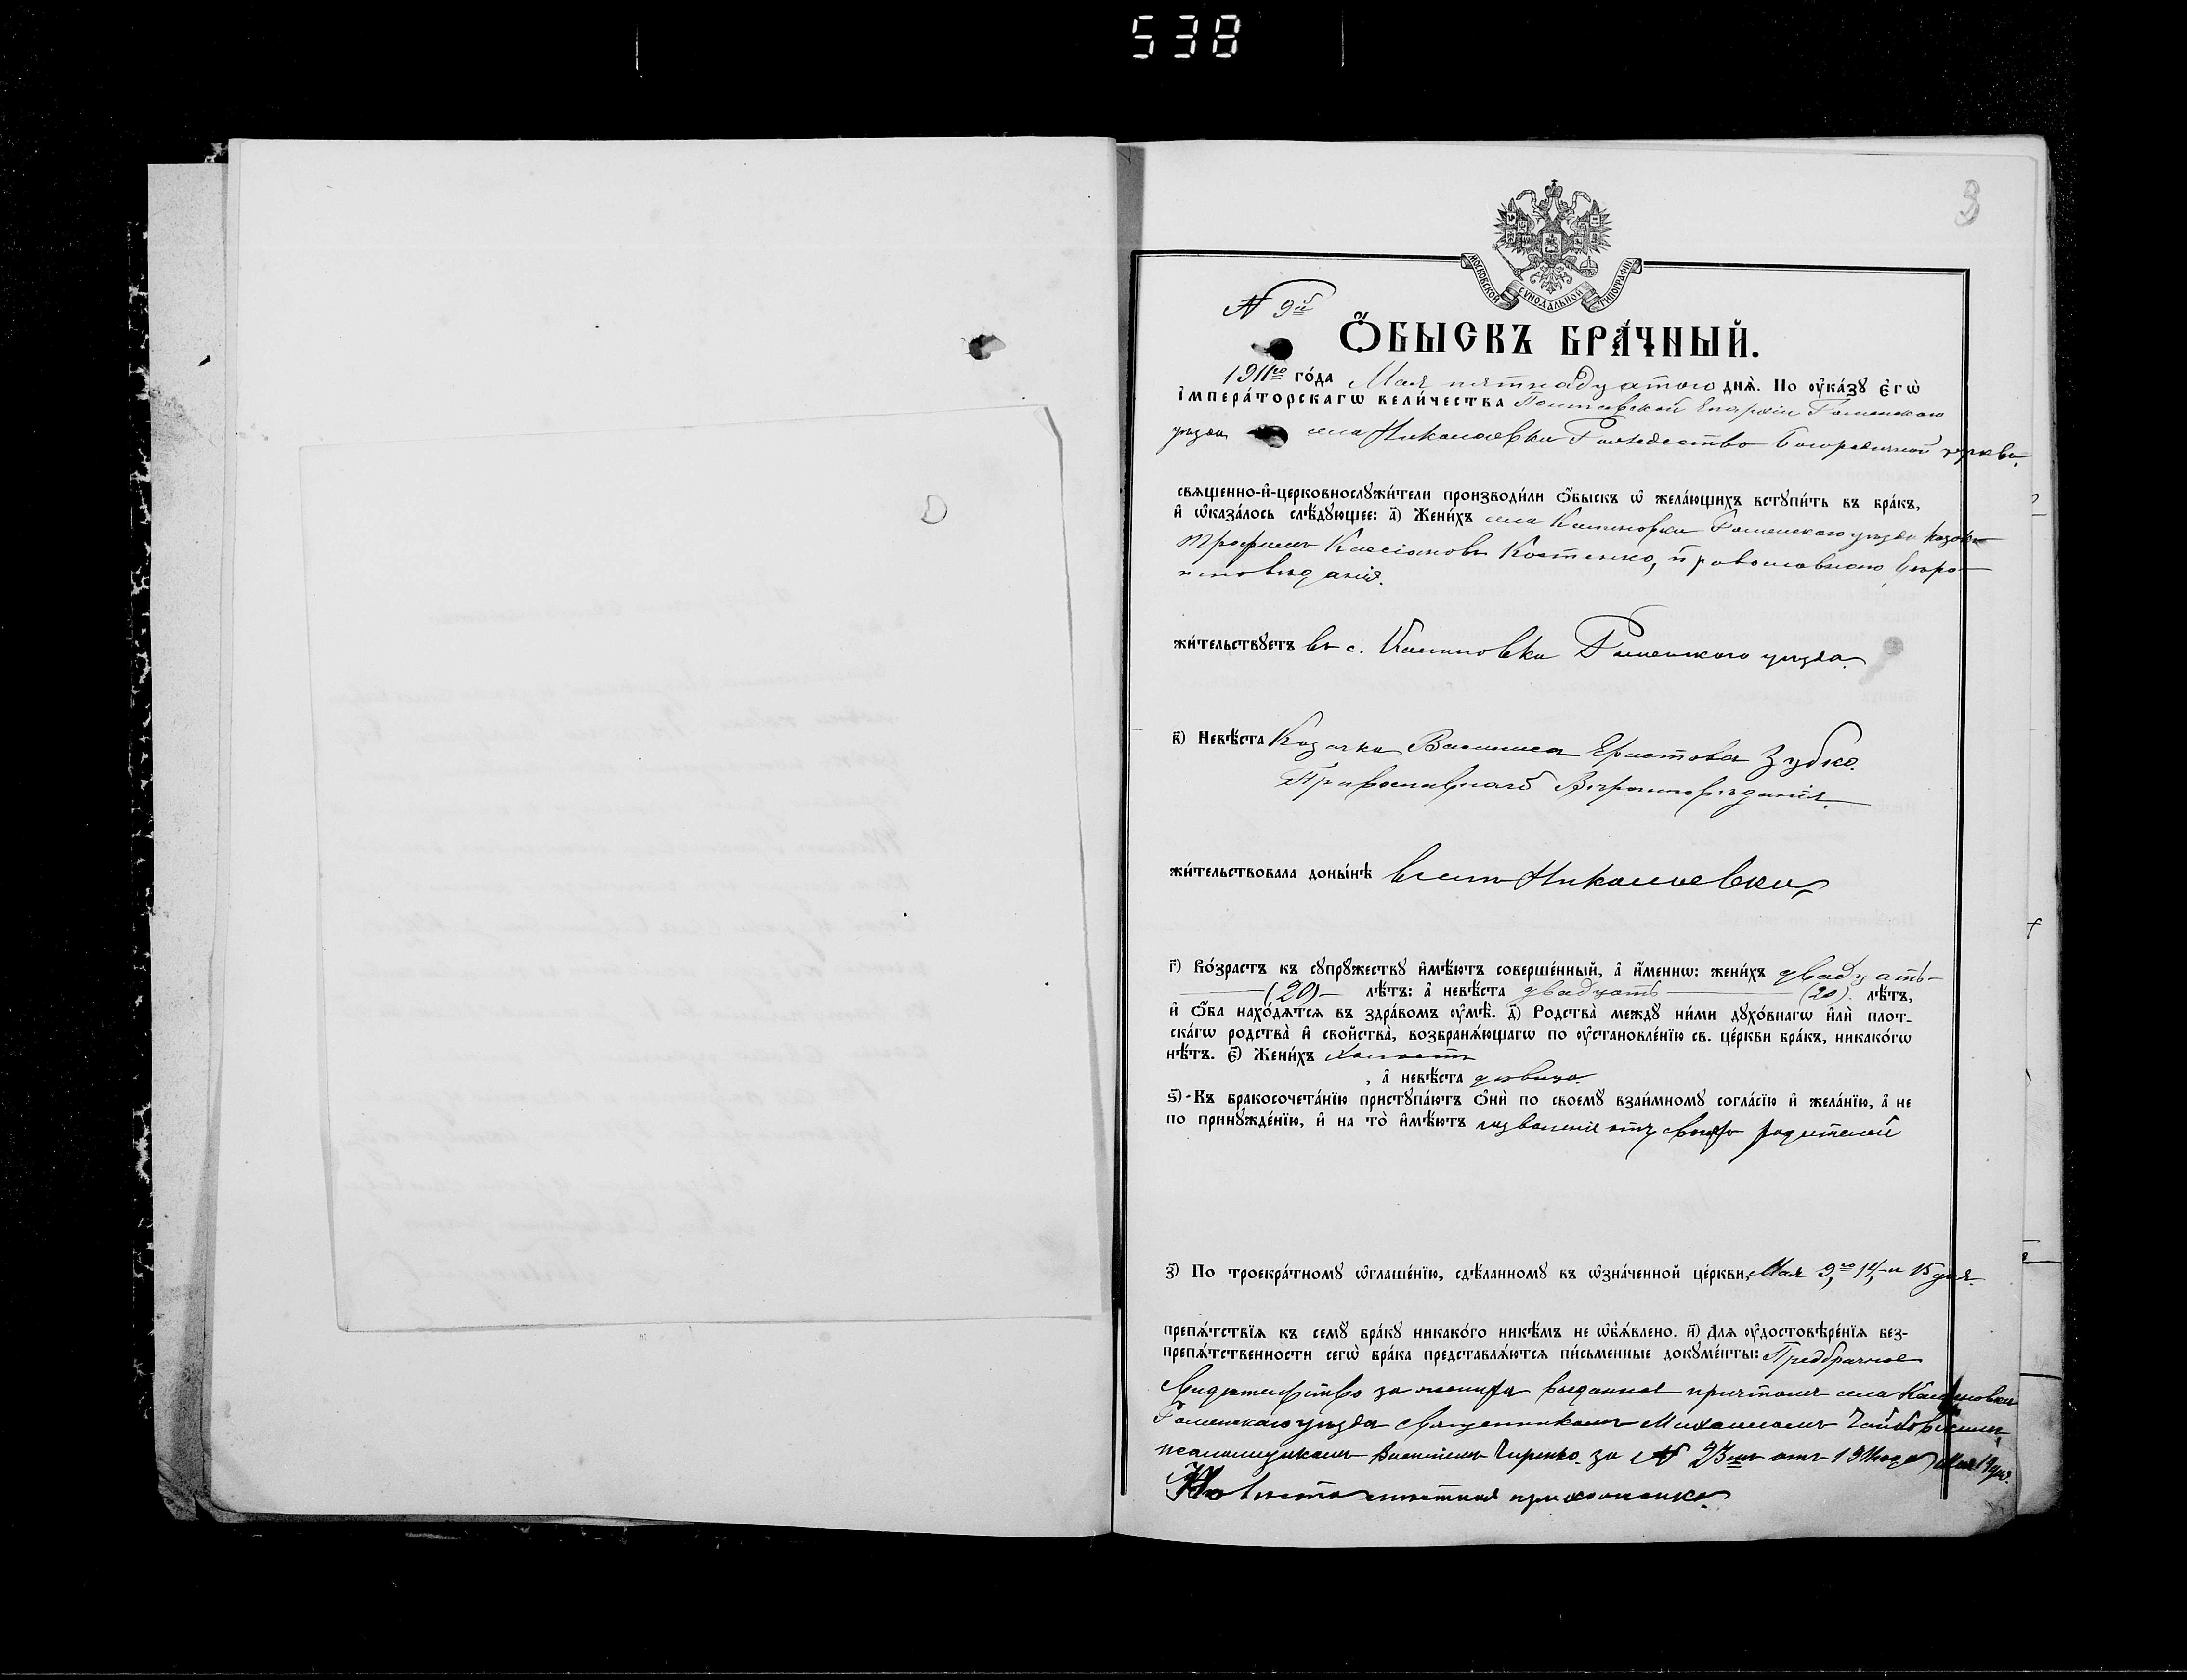 538
3
МОСКОВСКОЙ СѴНОДАЛЬНОЙ ТИПОГРАФІИ
N 9й
Ѻ҆БЫСКЪ БРА́ЧНЫЙ.
1911го го́да Мая пятнадцатого днѧ̀. По ᲂу҆ка́зꙋ є҆гѡ̀
і҆мпера́торскагѡ вели́чества Полтавской Епархіи Роменскаго
уезда села Николаевки Рождество Богородичной церкви,
свѧщенно-и҆-церковнослꙋжи́тели производи́ли ѻ҆́быскъ ѡ҆ жела́ющихъ встꙋпи́ть въ бра́къ,
и҆ ѡ҆каза́лось слѣ́дꙋющее: а҃) Жени́хъ села Калиновки Роменскаго уезда козакъ
Трофимъ Кассіановъ Костенко, православного веро-
исповѣданія.
жи́тельствꙋетъ въ с. Калиновки Роменского уезда.
в҃) Невѣ́ста Козачка Василиса Ерастова Зубко.
Православнаго Вѣроисповѣданія.
жи́тельствовала доны́нѣ в селе Николаевки
г҃) Во́зрастъ къ сꙋпрꙋ́жествꙋ и҆мѣ́ютъ соверше́нный, а҆ и҆́меннѡ: жени́хъ двадцать
(20) лѣ́тъ: а҆ невѣ́ста двадцать (20) лѣ́тъ,
и҆ ѻ҆́ба нахо́дѧтсѧ въ здра́вомъ ᲂу҆мѣ̀. д҃) Родства̀ междꙋ ни́ми дꙋхо́внагѡ и҆лѝ плот-
ска́гѡ родства̀ и҆ свойства̀, возбранѧ́ющагѡ по ᲂу҆становле́нїю св. це́ркви бра́къ, никако́гѡ
нѣ́тъ. є҃) Жени́хъ холостъ
, а҆ невѣ́ста девица.
ѕ҃) Къ бракосочета́нїю пристꙋпа́ютъ ѻ҆нѝ по своемꙋ̀ взаи́мномꙋ согла́сїю и҆ жела́нїю, а҆ не
по принꙋжде́нїю, и҆ на то̀ и҆мѣ́ютъ позволеніе отъ своихъ родителей
з҃) По троекра́тномꙋ ѡ҆глаше́нїю, сдѣ́ланномꙋ въ ѡ҆зна́ченной це́ркви, Мая 9го, 14, и 15 дня.
препѧ́тствїѧ къ семꙋ̀ бра́кꙋ никако́го никѣ́мъ не ѡ҆б̾ѧ́влено. и҃) Длѧ ᲂу҆достовѣре́нїѧ без-
препѧ́тственности сегѡ̀ бра́ка представлѧ́ютсѧ пи́сьменные докꙋме́нты: Предбрачное
свидетельство за жениха выданное причтомъ села Калиновки
Роменскаго уезда священникомъ Михаиломъ
псаломщикомъ за N отъ Мая
Невеста прихожанка.